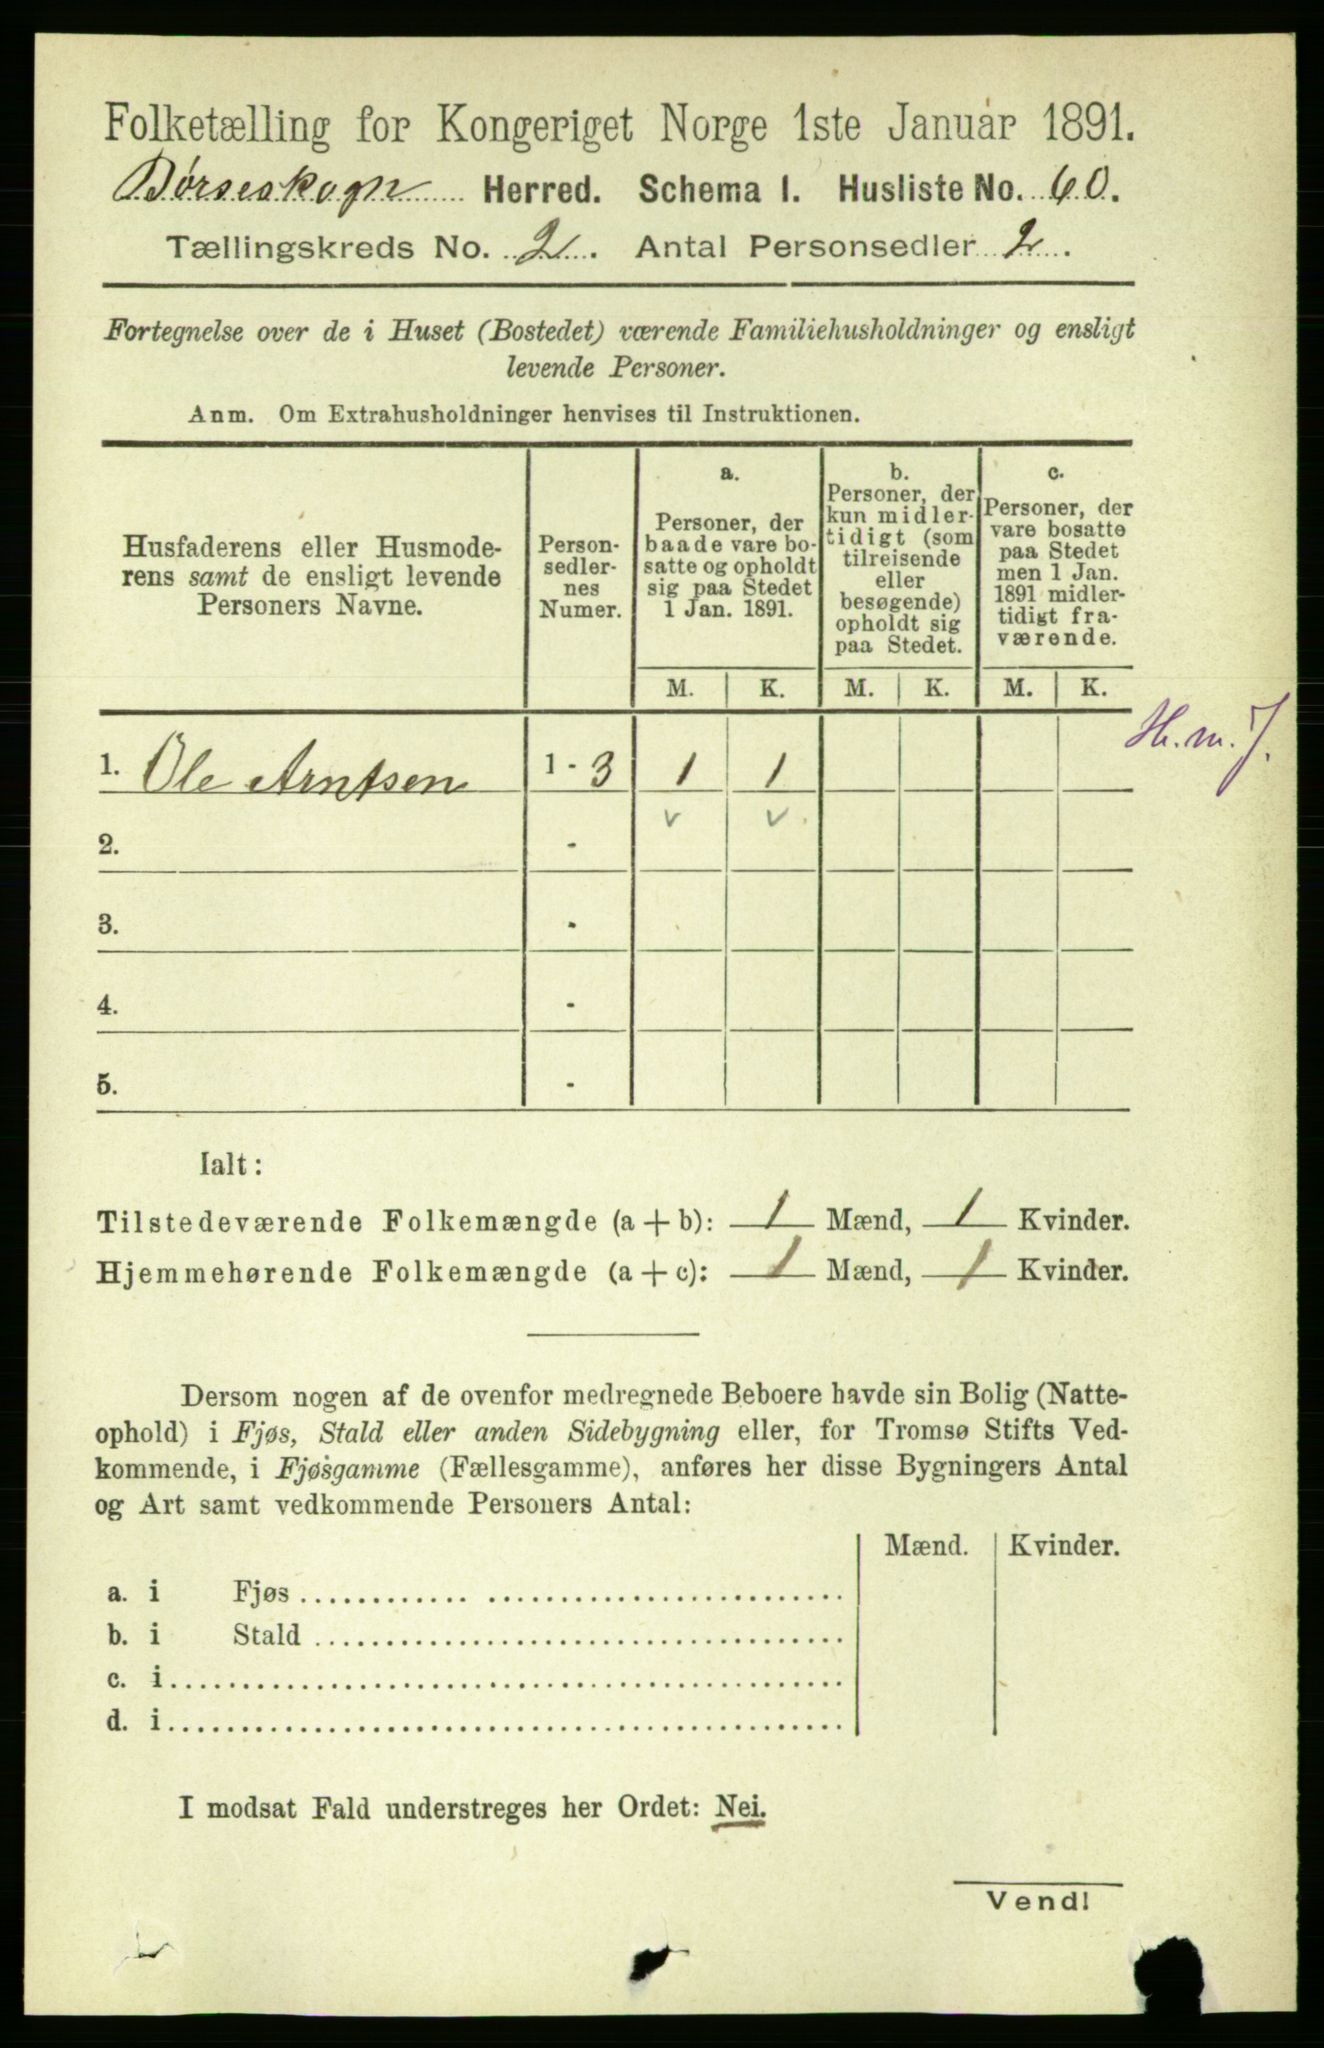 Folketælling for Kongeriget Norge 1ste Januar 1891.
Børseskogn Herred. Schema I. Husliste No. 60.
Tællingskreds No. 2. Antal Personsedler 2.
Fortegnelse over de i Huset (Bostedet) værende Familiehusholdninger og ensligt
levende Personer.
Anm. Om Extrahusholdninger henvises til Instruktionen.
Husfaderens eller Husmode-
rens samt de ensligt levende
Personers Navne.
Person-
sedler-
nes
Numer.
a.
Personer, der
baade vare bo-
satte og opholdt
sig paa Stedet
1 Jan. 1891.
b.
Personer, der
kun midler-
tidigt (som
tilreisende
eller
besøgende)
opholdt sig
paa Stedet.
c.
Personer, der
vare bosatte
paa Stedet
men 1 Jan.
1891 midler-
tidigt fra-
værende.
M. K. M. K. M. K.
1. Ole Arntsen 1 - 3 1 1
H. m. J.
2. - v v
3. -
4. -
5. -
Ialt:
Tilstedeværende Folkemængde (a + b): 1 Mænd, 1 Kvinder.
Hjemmehørende Folkemængde (a + c): 1 Mænd, 1 Kvinder.
Dersom nogen af de ovenfor medregnede Beboere havde sin Bolig (Natte-
ophold) i Fjøs, Stald eller anden Sidebygning eller, for Tromsø Stifts Ved-
kommende, i Fjøsgamme (Fællesgamme), anføres her disse Bygningers Antal
og Art samt vedkommende Personers Antal:
Mænd. Kvinder.
a. i Fjøs
b. i Stald
c. i
d. i
I modsat Fald understreges her Ordet: Nei.
Vend!